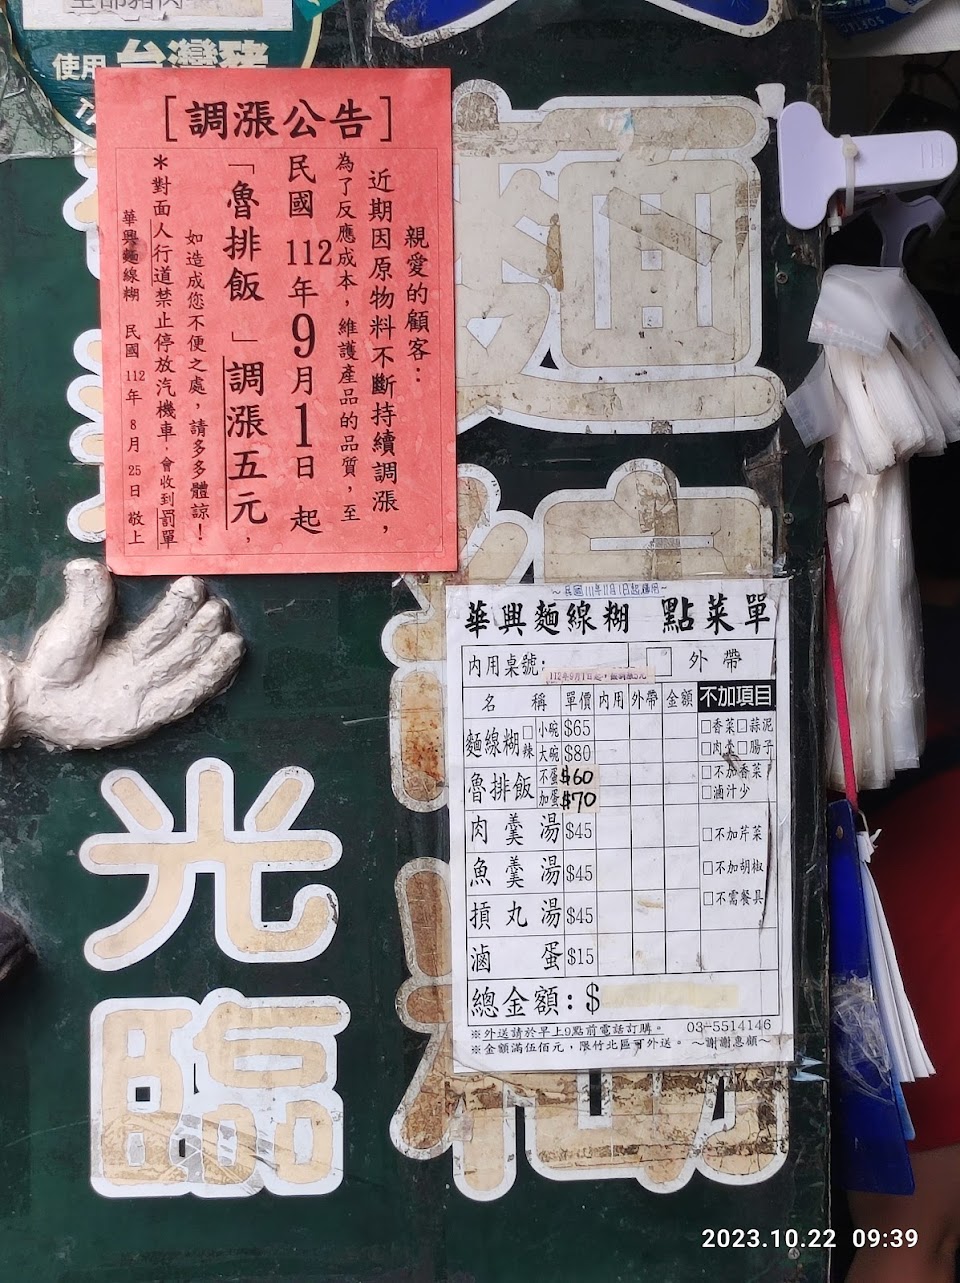 全部豬肉
使用
台灣豬
[調漲公告]
親愛的顧客：
近期因原物料不斷持續調漲，
為了反應成本，維護產品的品質，至
民國 112 年 9 月 1 日 起
「魯排飯」調漲五元，
如造成您不便之處，請多多體諒！
＊對面人行道禁止停放汽機車，會收到罰單
華興麵線糊 民國 112 年 8 月 25 日 敬上
麵
線
糊
光
臨
～民國111年11月1日起適用～
華興麵線糊 點菜單
內用桌號： □ 外帶
名 稱 單價 內用 外帶 金額 不加項目
麵線糊 □辣 小碗 $65 □香菜 □蒜泥
大碗 $80 □肉羹 □腸子
魯排飯 不蛋 $60 □不加香菜
加蛋 $70 □滷汁少
肉羹湯 $45 □不加芹菜
魚羹湯 $45 □不加胡椒
摃丸湯 $45 □不需餐具
滷蛋 $15
總金額：$
※外送請於早上9點前電話訂購。 03-5514146
※金額滿伍佰元，限竹北區可外送。 ～謝謝惠顧～
2023.10.22 09:39